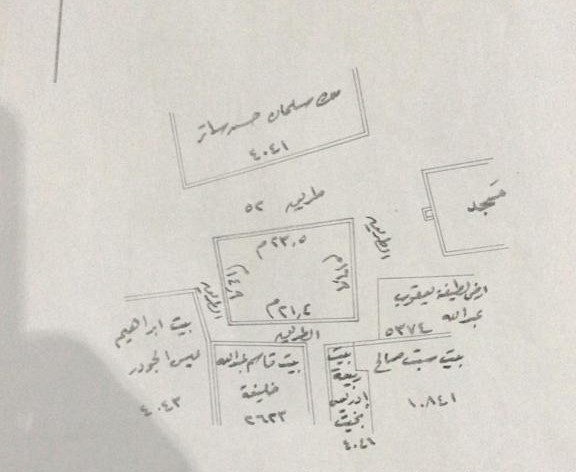 ملك سلمان حسن ساتر
٤٠٤١
طريق ٥٢
مسجد
الطريق
٢٣,٥م
١٦,٨م
١٤,٩م
٢١,٤م
الطريق
الطريق
ارض لطيفة يعقوب
عبدالله
٥٣٧٤
بيت ابراهيم
عيس الجودر
٤٠٤٣
بيت قاسم عبدالله
خليفة
٢٦٢٣
بيت
ربيعة
إدريس
بخيت
٤٠٤٦
بيت سبت صالح
١٠٨٤١